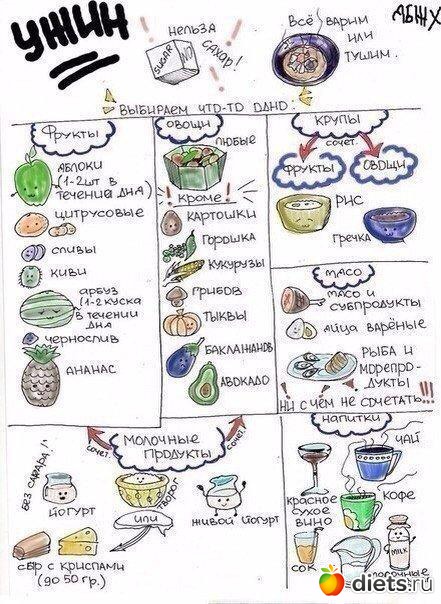 УЖИН
НЕЛЬЗЯ
САХАР!
SUGAR
NO
ВСЁ ВАРИМ
ИЛИ
ТУШИМ.
ВЫБИРАЕМ ЧТО-ТО ОДНО:
ФРУКТЫ
ЯБЛОКИ
(1-2 ШТ В
ТЕЧЕНИИ ДНЯ)
ЦИТРУСОВЫЕ
СЛИВЫ
КИВИ
АРБУЗ
(1-2 КУСКА
В ТЕЧЕНИИ
ДНЯ
ЧЕРНОСЛИВ
АНАНАС
ОВОЩИ
ЛЮБЫЕ
! КРОМЕ: !
КАРТОШКИ
ГОРОШКА
КУКУРУЗЫ
ГРИБОВ
ТЫКВЫ
БАКЛАЖАНОВ
АВОКАДО
КРУПЫ
СОЧЕТ.
ФРУКТЫ
ОВОЩИ
РИС
ГРЕЧКА
МЯСО
МЯСО И
СУБПРОДУКТЫ
ЯЙЦА ВАРЁНЫЕ
РЫБА И
МОРЕПРО-
ДУКТЫ
НИ С ЧЕМ НЕ СОЧЕТАТЬ!!!
МОЛОЧНЫЕ
ПРОДУКТЫ
СОЧЕТ.
СОЧЕТ.
БЕЗ САХАРА!
ЙОГУРТ
ТВОРОГ
ИЛИ
ЖИВОЙ ЙОГУРТ
СЫР С КРИСПАМИ
(ДО 50 ГР.)
НАПИТКИ
ЧАЙ
КРАСНОЕ
СУХОЕ
ВИНО
КОФЕ
СОК
MILK
МОЛОЧНЫЕ
diets.ru